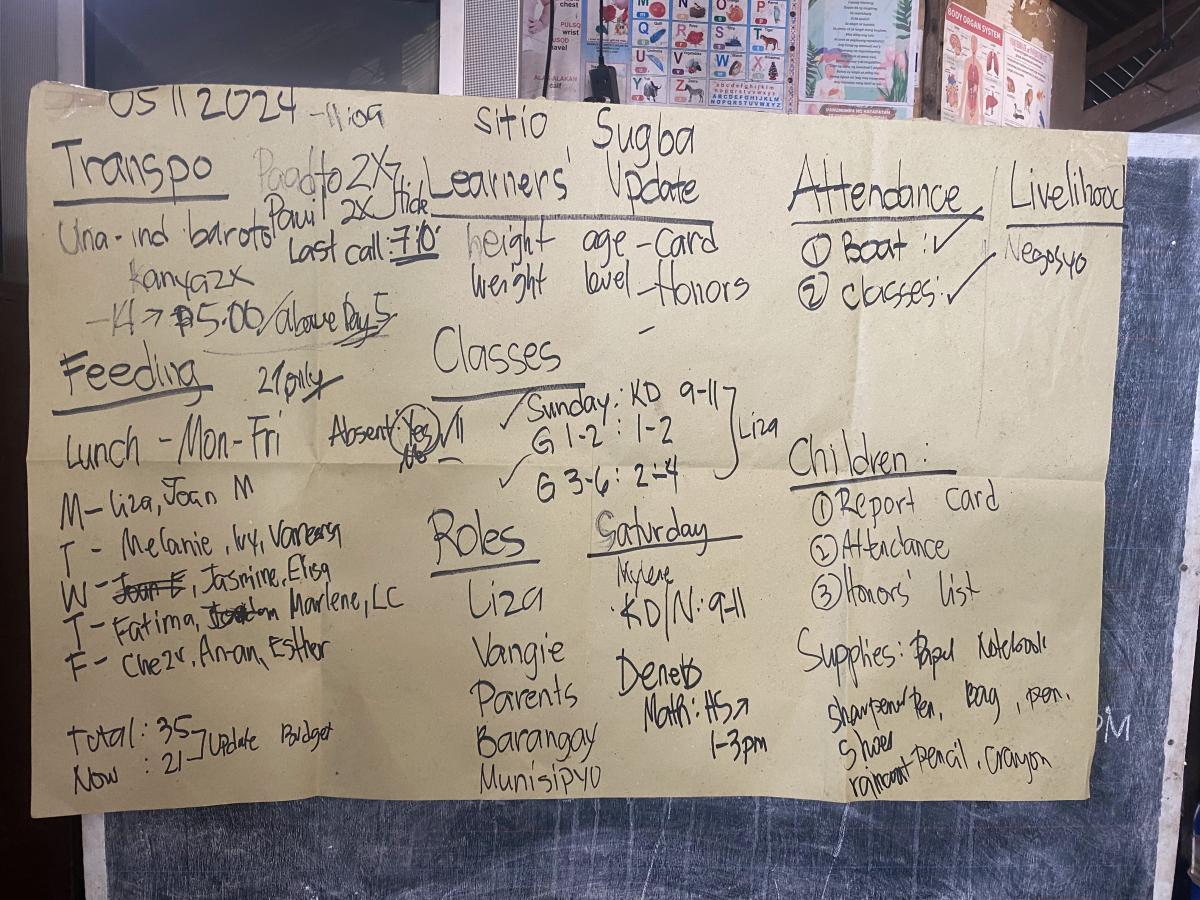 05 11 2024
Sitio Sugba
Transpo
Paadto 2X
Pauli 2X
Tide
Una-ind baroto
Last call: 7:10
Kanya 2x
₱5.00/above Day 5
Learners' Update
height age - Card
weight level - Honors
Attendance
① Boat: ✓
② Classes: ✓
Livelihood
Negosyo
Feeding
21 only
Lunch - Mon-Fri
Absent: Yes
No
M - Liza, Joan M
T - Melanie, Ivy, Vanessa
W - Joan E, Jasmine, Elisa
T - Fatima, Marlene, LC
F - Chezr, An-an, Esther
Total: 35
Now: 21
Update Budget
Classes
Sunday: KD 9-11
G 1-2: 1-2
G 3-6: 2-4
Liza
Roles
Liza
Vangie
Parents
Barangay
Munisipyo
Saturday
Mylene
KD/N: 9-11
Math: HS
1-3pm
Children:
① Report Card
② Attendance
③ Honors' List
Supplies: Papel Notebook
sharpener Pen, Bag, pen,
shoes
raincoat pencil, crayon
PM
BODY ORGAN SYSTEM
M N O P
Q R S T
U V W X
Y Z
chest
wrist